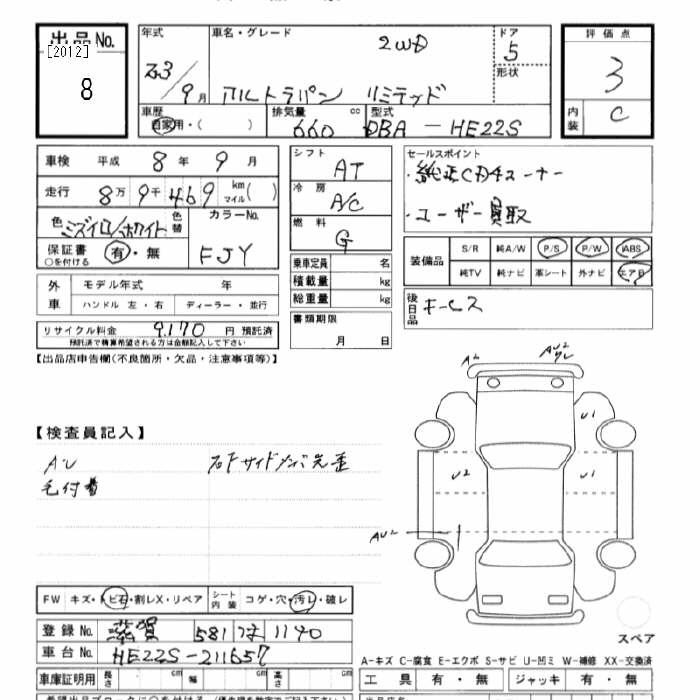 出品No.
[2012]
8
年式
23/9月
車名・グレード
2WD
アルトラパン リミテッド
ドア
5
形状
評価点
3
内装
C
車歴
自家用・( )
排気量
660
cc
型式
DBA-HE22S
車検 平成 8年 9月
走行 8万9千469 km マイル( )
色 ミズイロ/ホワイト
色替
カラーNo.
FJY
保証書 有・無
○を付ける
シフト
AT
冷房
A/C
燃料
G
乗車定員 名
積載量 kg
総重量 kg
書類期限
月 日
セールスポイント
・純正CDチューナー
・ユーザー買取
装備品
S/R 純A/W P/S P/W ABS
純TV 純ナビ 革シート 外ナビ エアB
後日品
キーレス
外車
モデル年式 年
ハンドル 左・右 ディーラー・並行
リサイクル料金 9170 円 預託済
預託済で精算希望される方は金額記入して下さい
【出品店申告欄(不良箇所・欠品・注意事項等)】
【検査員記入】
AU
毛付着
フロドサイドメンバ先歪
A2
AU2
U1
U2
U1
AU2
スペア
FW キズ・トビ石・割レX・リペア
シート内装 コゲ・穴・汚レ・破レ
登録No. 滋賀 581 1140
車台No. HE22S-211657
車庫証明用 長さ cm 幅 cm 高さ cm
A-キズ C-腐食 E-エクボ S-サビ U-凹ミ W-補修 XX-交換済
工具 有・無 ジャッキ 有・無